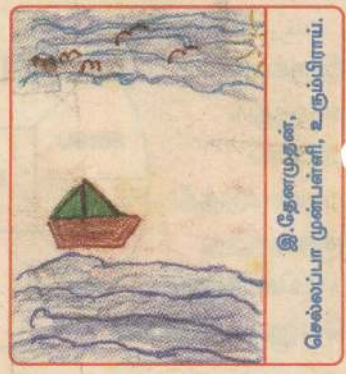 இ.தேனமுதன்,
செல்லப்பா முன்பள்ளி, உரும்பிராய்.